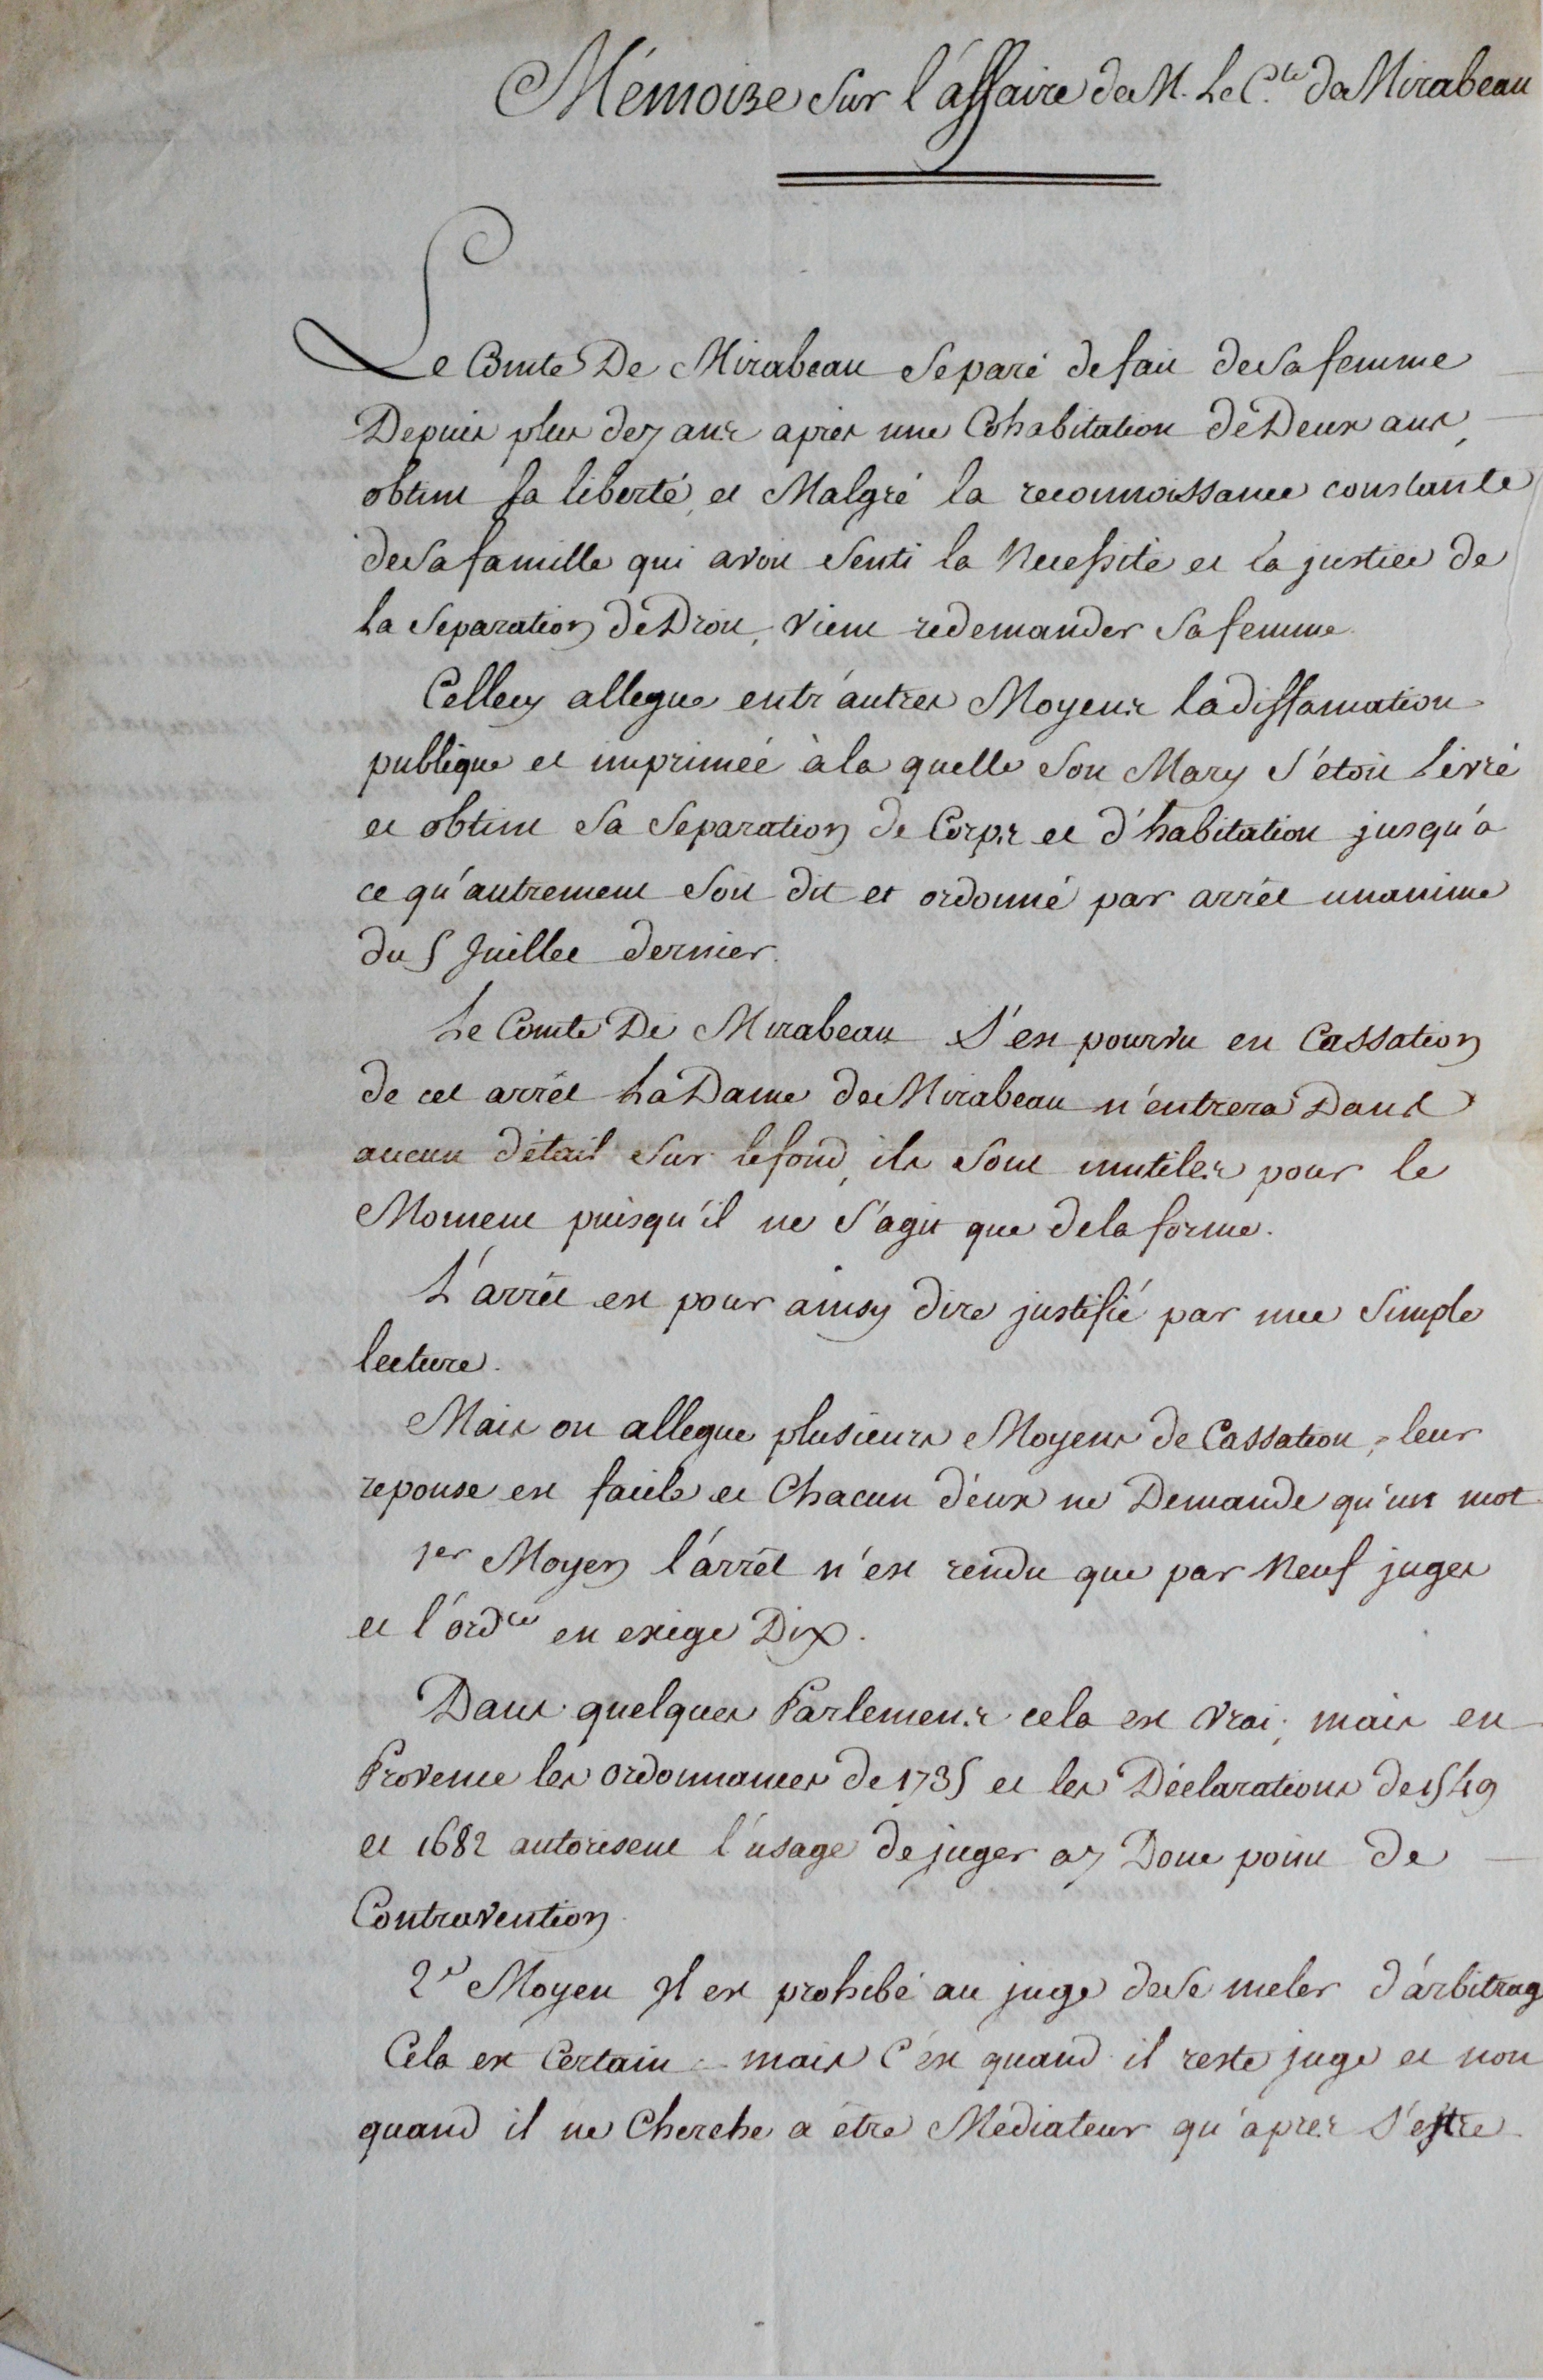 Mémoire Sur l'affaire de M. Le C.te de Mirabeau
Le Comte De Mirabeau Separé de fait de Sa femme
Depuis plus de 7 ans après une Cohabitation de Deux ans,
obtint sa liberté, et Malgré la reconnoissance constante
de Sa famille qui avoit Senti la Necessité et la justice de
la Separation de Droit, vient redemander Sa femme.
Cellecy allegue entr'autres Moyens la diffamation
publique et impriméé à la quelle Son Mary S'étoit Livré
et obtint Sa Separation de Corps et d'habitation jusqu'a
ce qu'autrement Soit dit et ordonné par arrêt unanime
du 5 Juillet dernier.
Le Comte De Mirabeau S'est pourvu en Cassation
de cet arrêt La Dame de Mirabeau n'entrera Dans
aucun détail Sur le fond, ils Sont inutiles pour le
Moment puisqu'il ne S'agit que de la forme.
L'arrêt est pour ainsy dire justifié par une Simple
lecture.
Mais on allegue plusieurs Moyens de Cassation, leur
reponse est facile et Chacun d'eux ne Demande qu'un mot
1er Moyen l'arrêt n'est rendu que par Neuf juges
et l'ordce en exige Dix.
Dans quelques Parlemens cela est vrai; mais en
Provence les ordonnances de 1735 et les Déclarations de 1549
et 1682 autorisent l'usage de juger a 7 Donc point de
Contravention.
2e Moyen Il est prohibé au juge de Se meler d'arbitrag
Cela est Certain mais C'est quand il reste juge et non
quand il ne Cherche a être Mediateur qu'apres S'estre